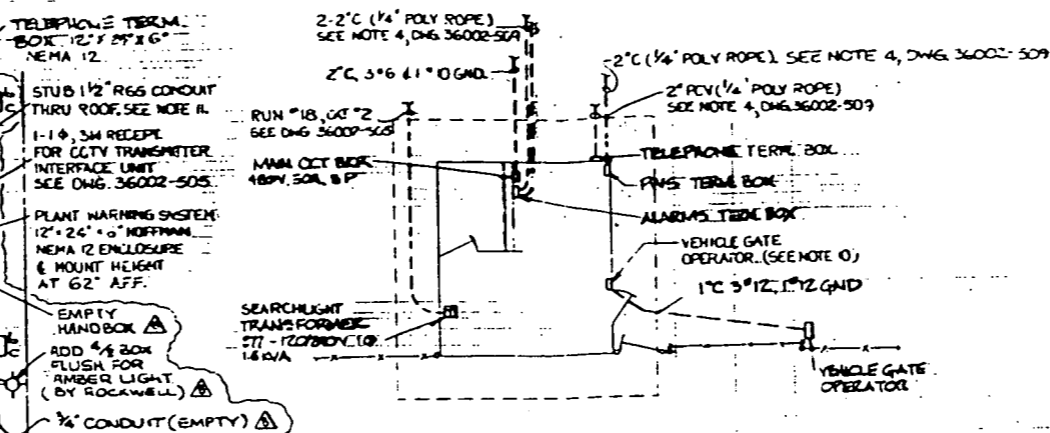 TELEPHONE TERM.
BOX 12" X 24" X 6"
NEMA 12
STUB 1 1/2" RGS CONDUIT
THRU ROOF. SEE NOTE 11.
1-1 Φ, 3W RECEPT
FOR CCTV TRANSMITTER
INTERFACE UNIT
SEE DWG. 36002-505
PLANT WARNING SYSTEM
12" x 24" x 6" HOFFMAN
NEMA 12 ENCLOSURE
℄ MOUNT HEIGHT
AT 62" AFF.
EMPTY
HANDBOX
ADD 4/S BOX
FLUSH FOR
AMBER LIGHT
(BY ROCKWELL)
3/4" CONDUIT (EMPTY)
2-2"C (1/4" POLY ROPE)
SEE NOTE 4, DWG. 36002-509
2"C, 3#6 & 1#10 GND.
RUN #18, CCT #2
SEE DWG 36002-505
MAIN CCT BKR
480V, 50A, 3P
SEARCHLIGHT
TRANSFORMER
277-120/240V, 1Φ
1.5 KVA
2"C (1/4" POLY ROPE) SEE NOTE 4, DWG 36002-509
2" PCV (1/4" POLY ROPE)
SEE NOTE 4, DWG. 36002-509
TELEPHONE TERM. BOX
PWS TERM BOX
ALARMS TERM BOX
VEHICLE GATE
OPERATOR. (SEE NOTE 10)
1"C 3#12, 1#12 GND
VEHICLE GATE
OPERATOR